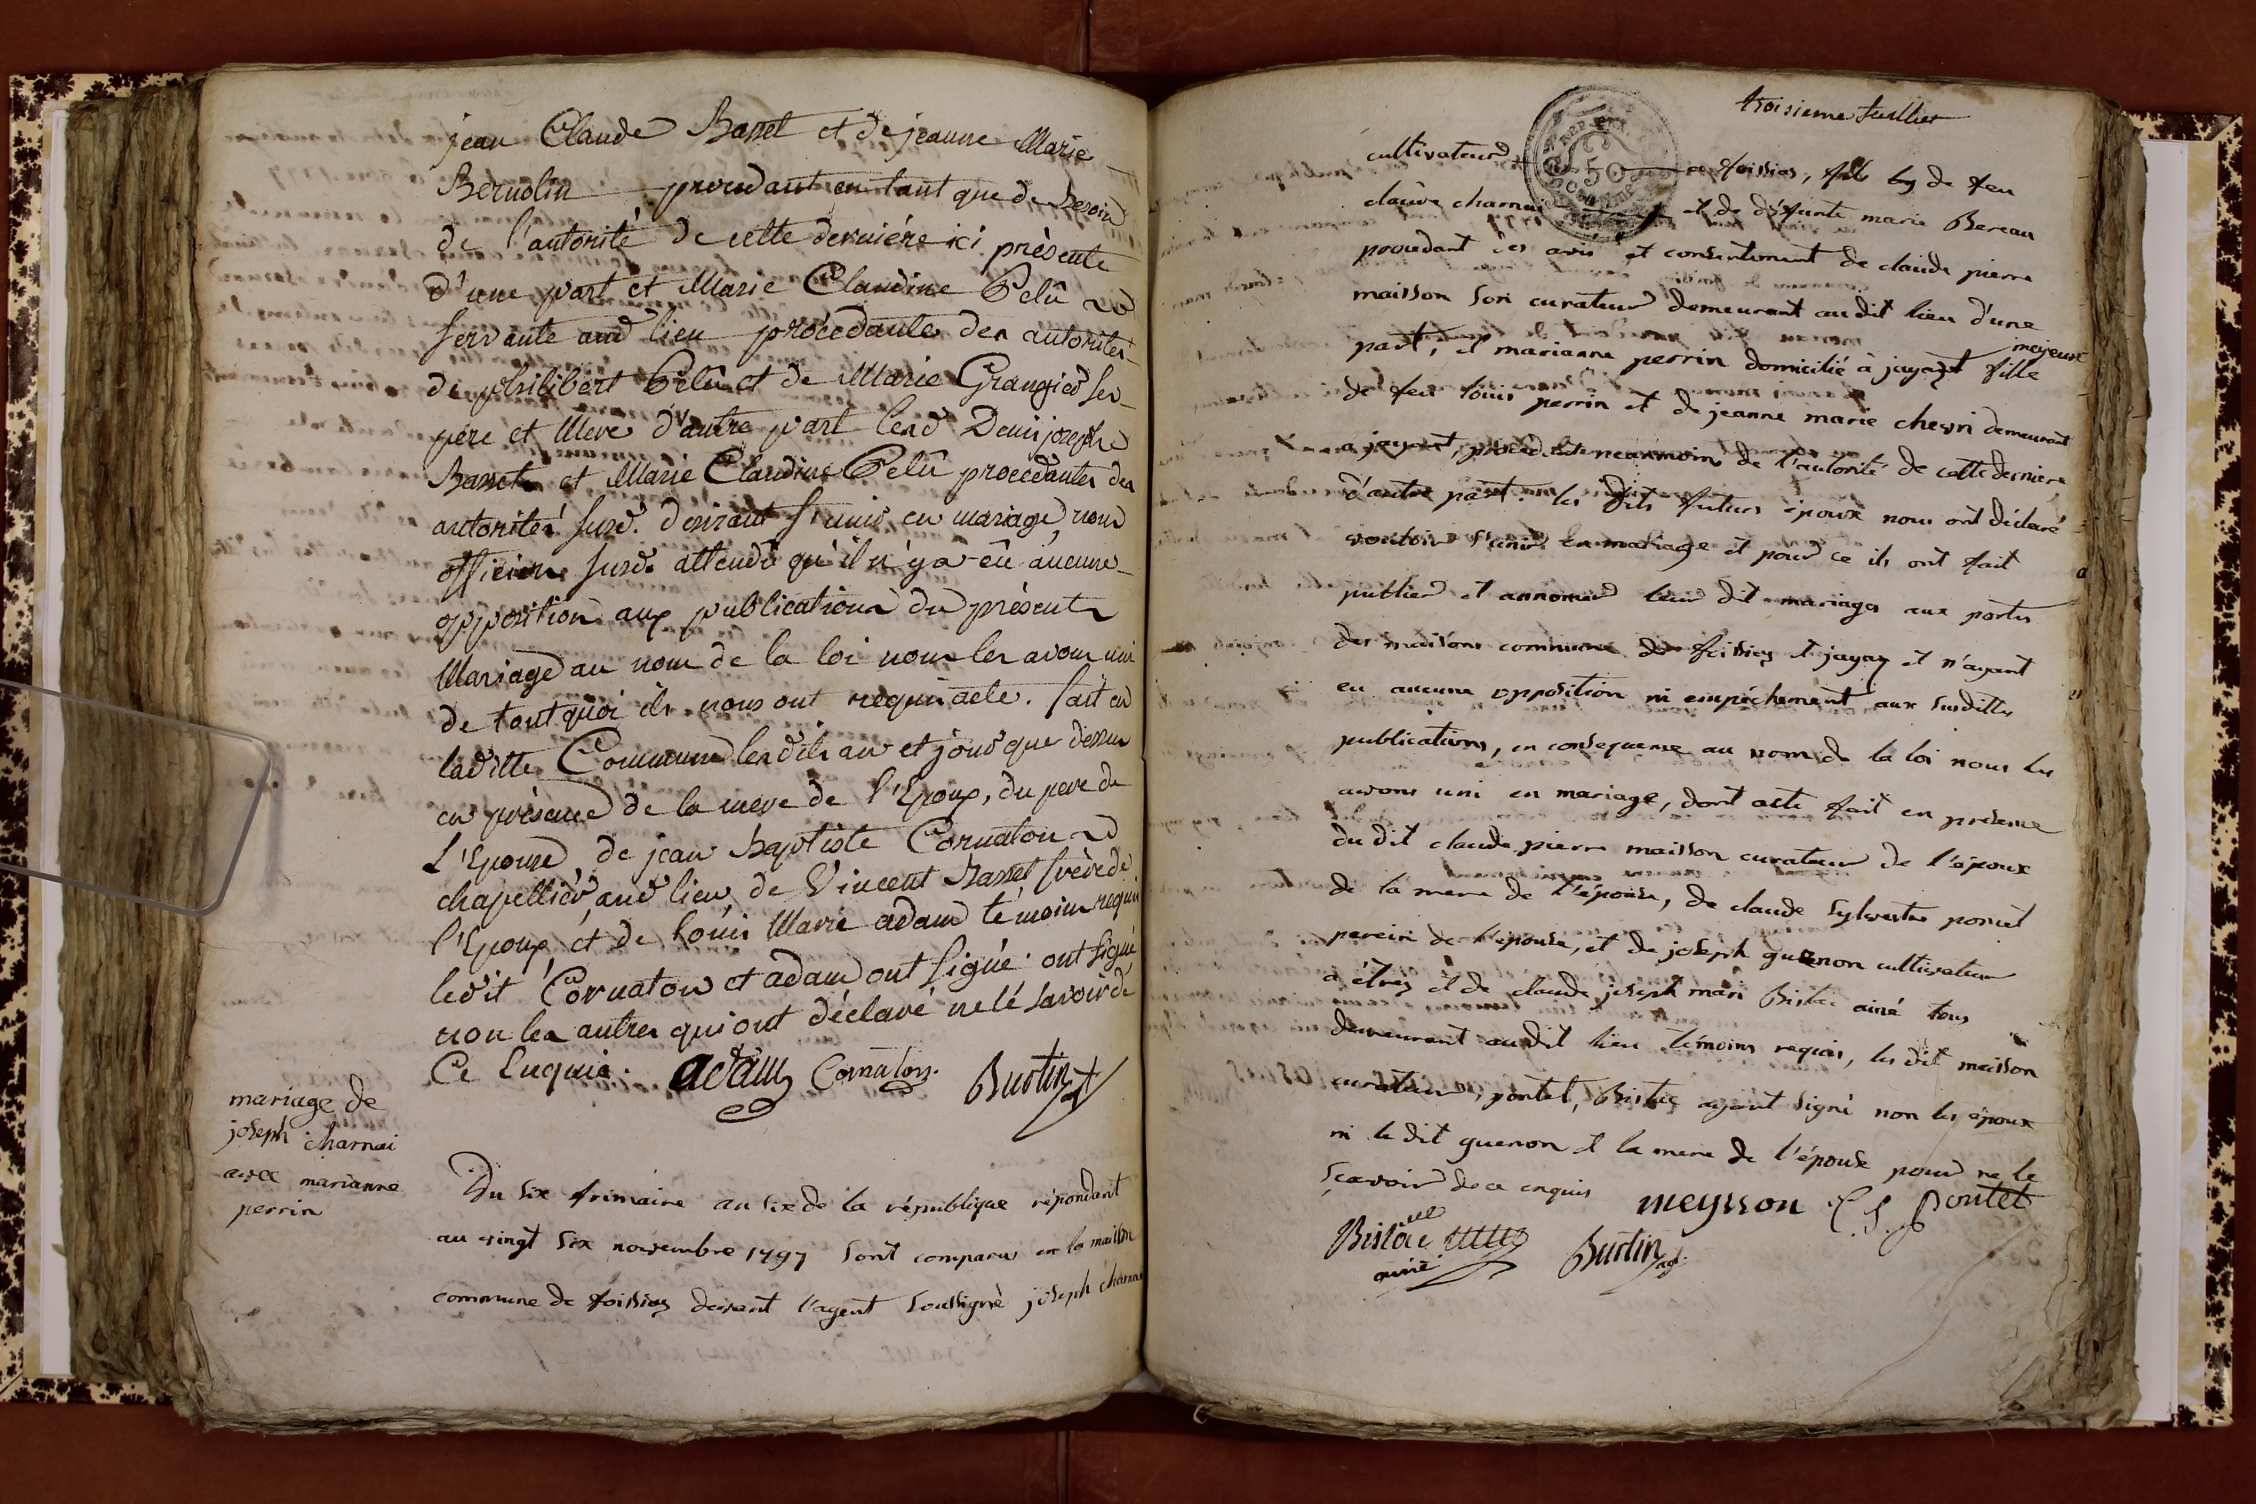 jean Claude Basset et de jeanne Marie
Bernolin procedant en tant que de besoin
de l'autorité de cette derniére ici présente
d'une part et Marie Claudine Pelû
servante aud lieu procédante des autorités
de philibert Pelû et de Marie Grangier ses
pére et Mere d'autre part lesd Denis joseph
Basset et Marie Claudine Pelû procédantes des
autorités susd. desirant s'unir en mariage, nous
officier susd. attendû qu'il n'y a eû aucune
opposition aux publications du présent
Mariage au nom de la loi nous les avons uni
de tout quoi ils nous ont requis acte. fait en
laditte Commune lesdits an et jour que dessus
en présence de la mere de l'Epoux, du pere de
L'Epouse, de jean Baptiste Cornaton
chapellier aud lieu, de Vincent Basset frére de
l'Epoux, et de louis Marie adam témoins requis
ledit Cornaton et adam ont signé. ont signé
non les autres qui ont déclaré ne le savoir de
Ce Enquis. adam Cornaton. Burtin
mariage de
joseph charnai
avec marianne
perrin
Du six frimaire an six de la république répondant
au vingt six novembre 1797 sont comparus en la maison
commune de foissiaz devant l'agent soussigné joseph charnai
troisieme feuillet
REP. FRA.
50
cultivateur a foissias, fils de feu
claude charnai et de défunte marie Bereau
procedant des avis et consentement de claude pierre
maisson son curateur demeurant au dit lieu d'une
part, et marianne perrin domicilié à jayat fille majeure
de feu louis perrin et de jeanne marie demeurant
a jayat, procédante neanmoins de l'autorité de cette derniere
d'autre part. les dits futurs époux nous ont déclaré
vouloir s'unir en mariage et pour ce ils ont fait
publier et annoncer leur dit mariages aux portes
des maisons commune de foissiaz et jayaz et n'ayant
eu aucune opposition ni empéchement aux susdittes
publications, en consequence au nom de la loi nous les
avons uni en mariage, dont acte fait en présence
du dit claude pierre maisson curateur de l'époux
de la mere de l'épouse, de claude sylvestre pontet
perein de l'épouse, et de joseph guenon cultivateur
a étrez et de claude joseph mari Bistac ainé tous
demeurant au dit lieu témoins requis, les dit maisson
curateur, pontet, Bistac ayant signé non les époux
ni le dit guenon et la mere de l'épouse pour ne le
sçavoir de ce enquis meysson C. S. pontet
Bistac
ainé Burtin agt.